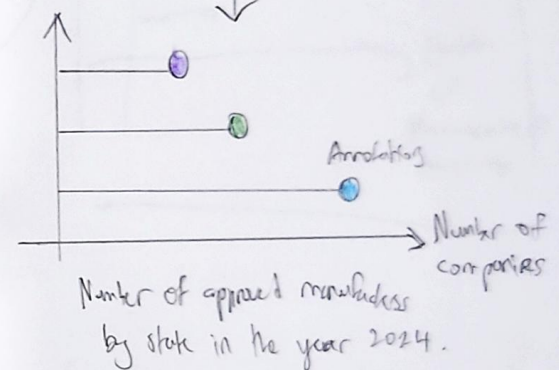 Annotation
Number of
companies
Number of approved
by state in the year 2024.